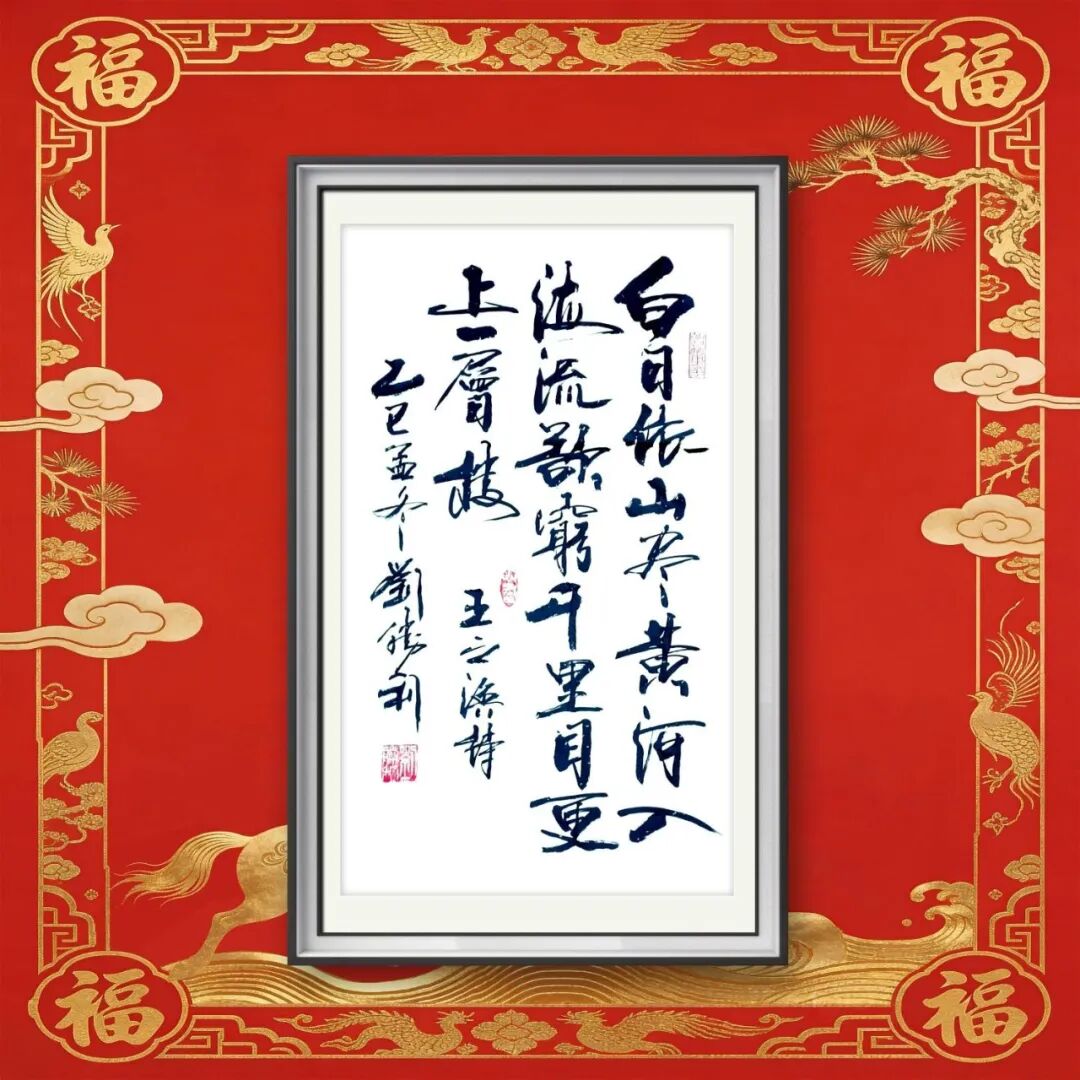 福
福
白日依山尽黄河入
海流欲窮千里目更
上一層楼
王之渙詩
乙巳孟冬劉勝利
福
福